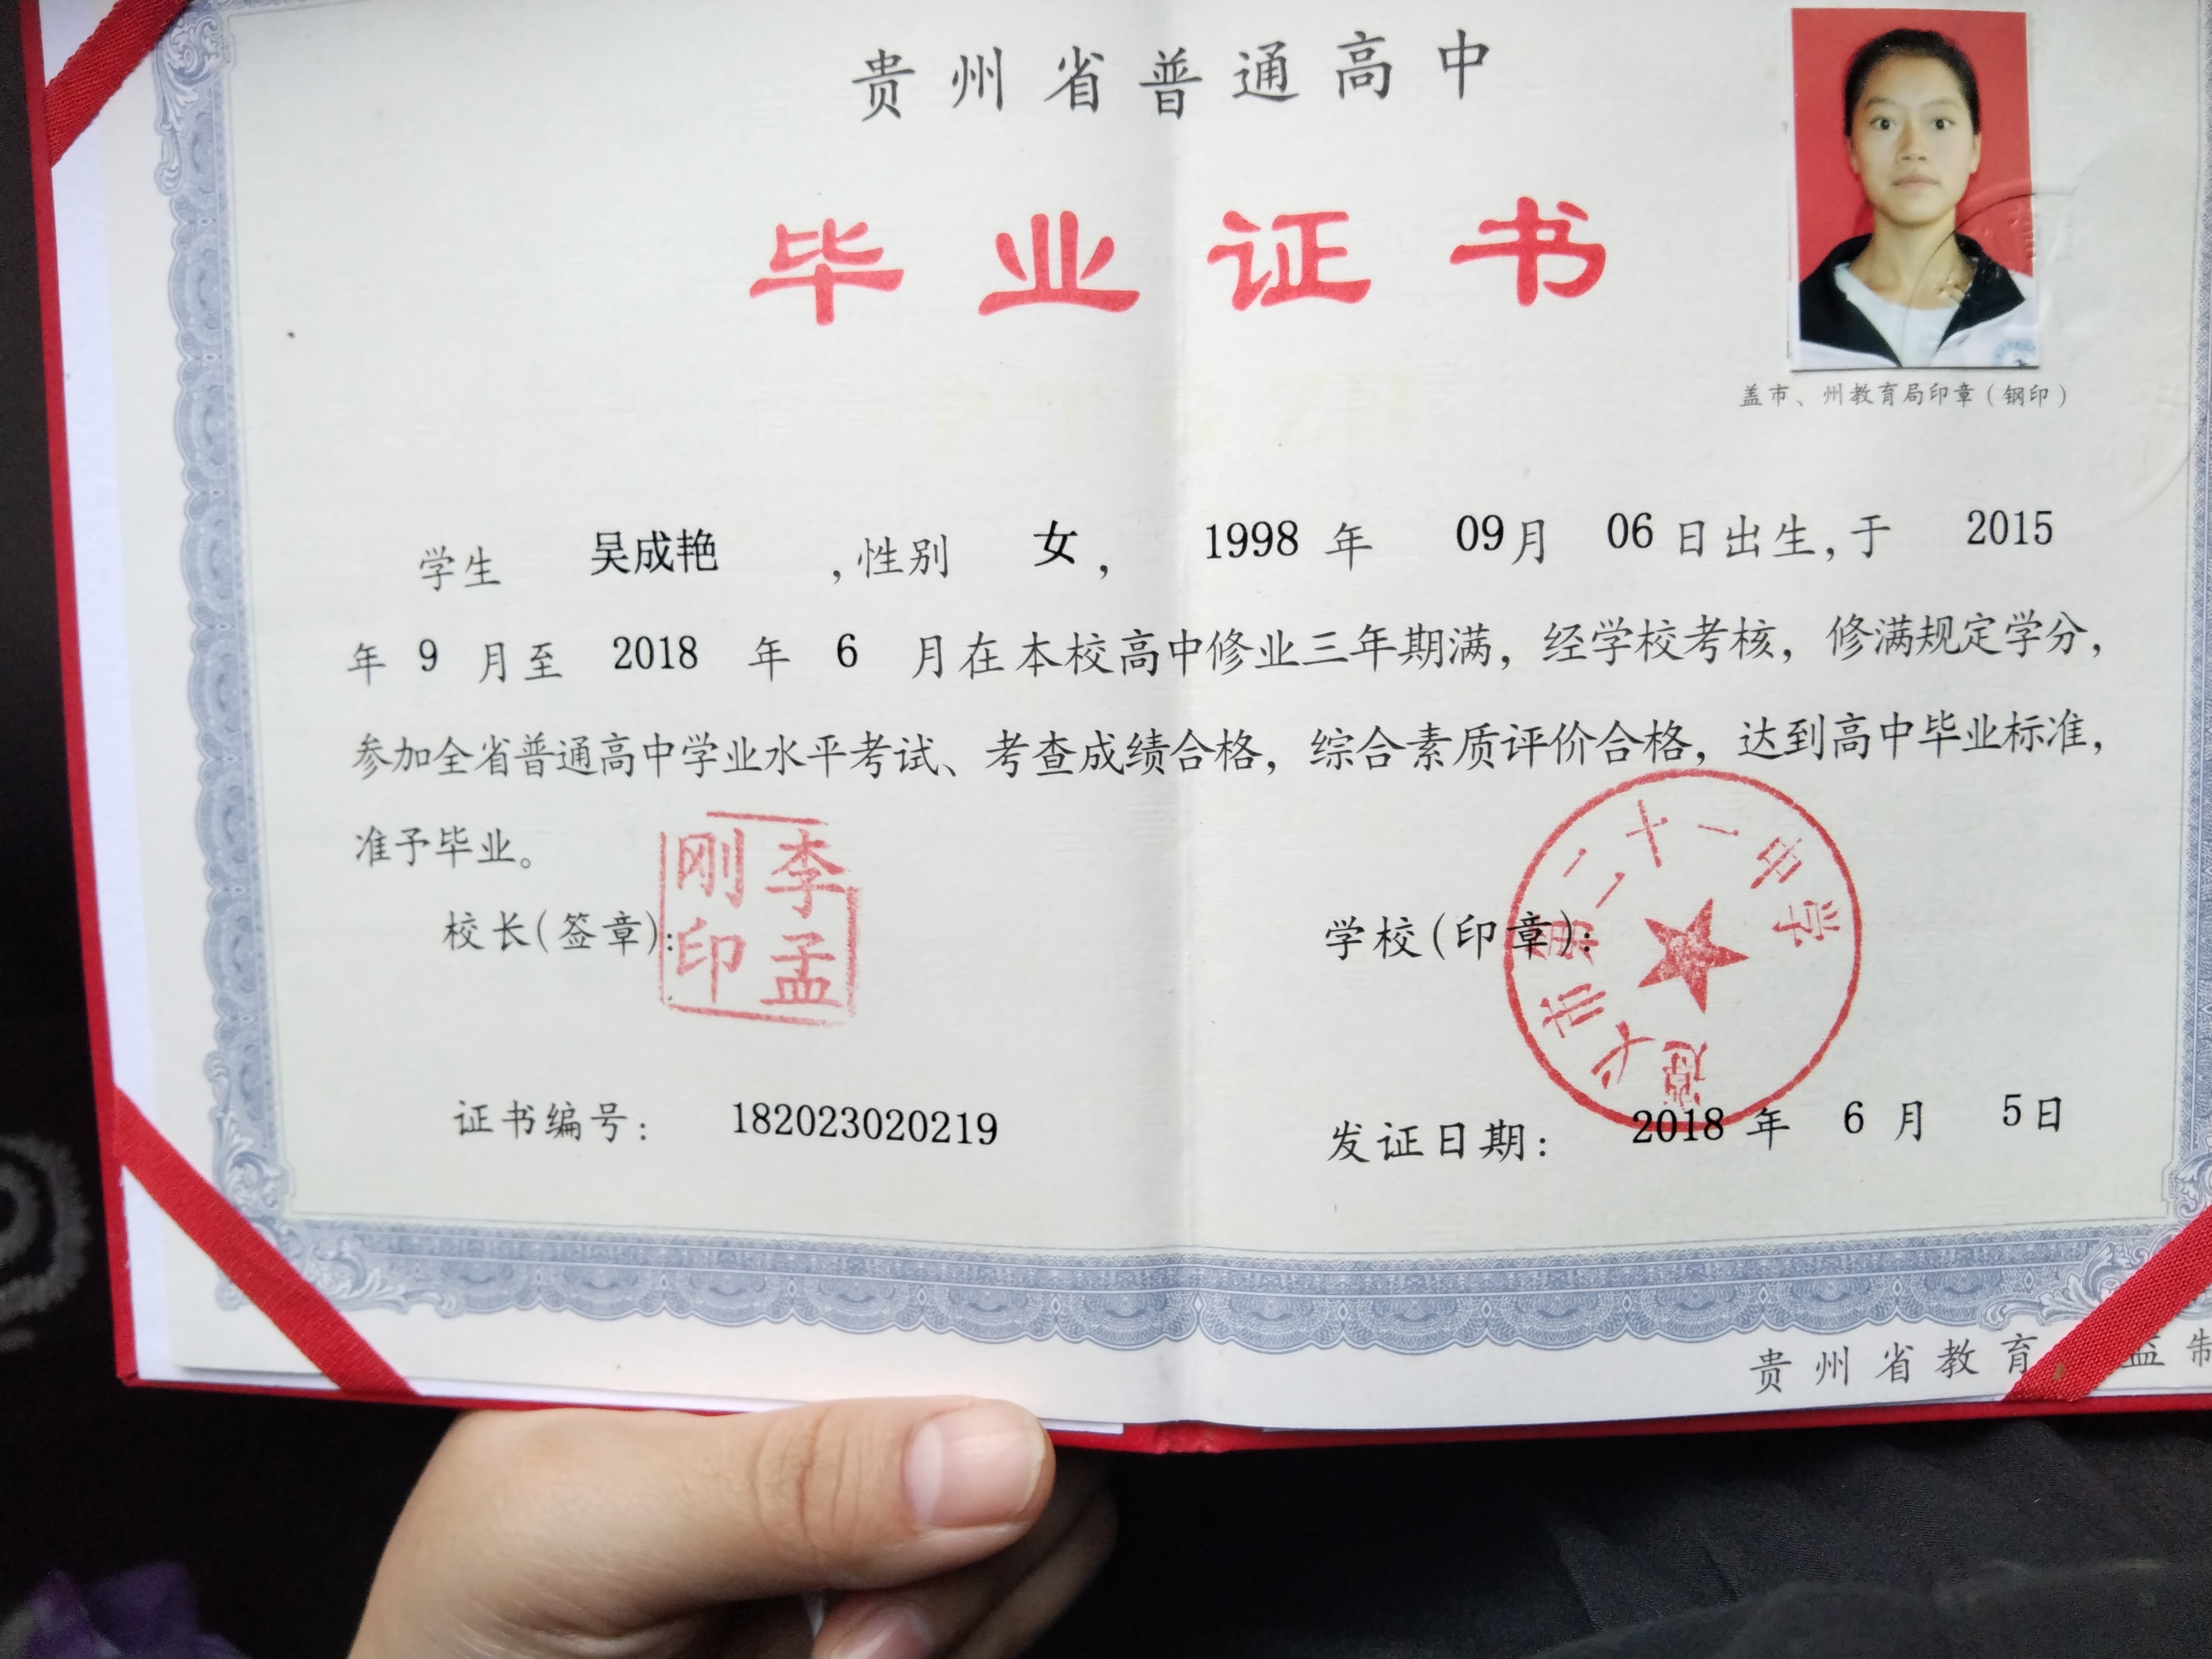 贵州省普通高中
毕业证书
盖市、州教育局印章(钢印)
学生 吴成艳 ,性别 女, 1998 年 09月 06日出生,于 2015
年 9 月至 2018 年 6 月在本校高中修业三年期满，经学校考核，修满规定学分，
参加全省普通高中学业水平考试、考查成绩合格，综合素质评价合格，达到高中毕业标准，
准予毕业。
校长(签章):
李孟刚印
学校(印章):
遵义市第二十一中学
证书编号: 182023020219
发证日期: 2018 年 6 月 5日
贵州省教育 监制